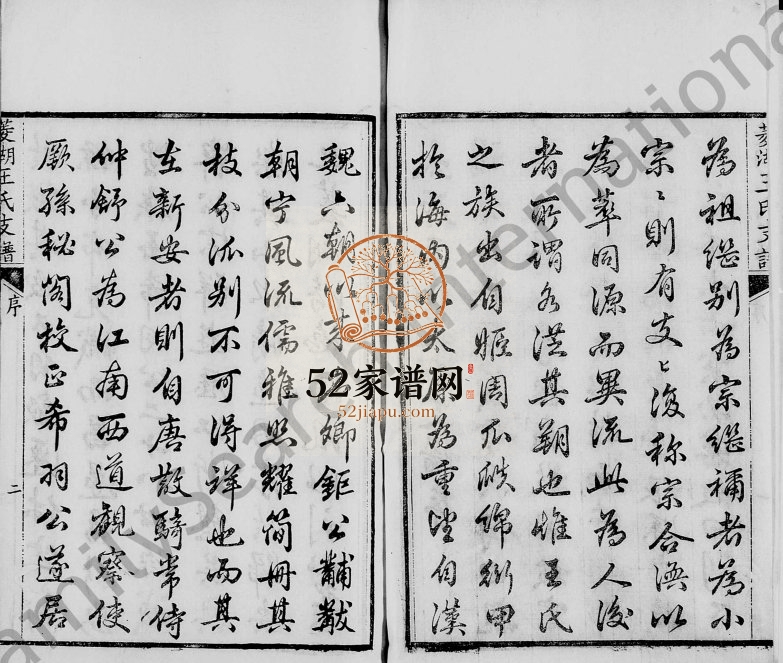 為祖繼別為宗繼禰者為小
宗〻則有支〻復称宗合渙以
為萃同源而異流此為人後
者所謂各溯其朔也惟王氏
之族出自姬周瓜瓞綿衍甲
於海內以太原為重望自漢
魏六朝以 卿鉅公黼黻
朝宁風流儒雅照耀簡冊其
枝分派別不可得詳也而其
在新安者則自唐散騎常侍
仲舒公為江南西道觀察使
厥孫秘閣校正希羽公遂居
菱湖王氏支譜
序
二
菱湖王氏支譜
52家谱网
52jiapu.com
FamilySearch International